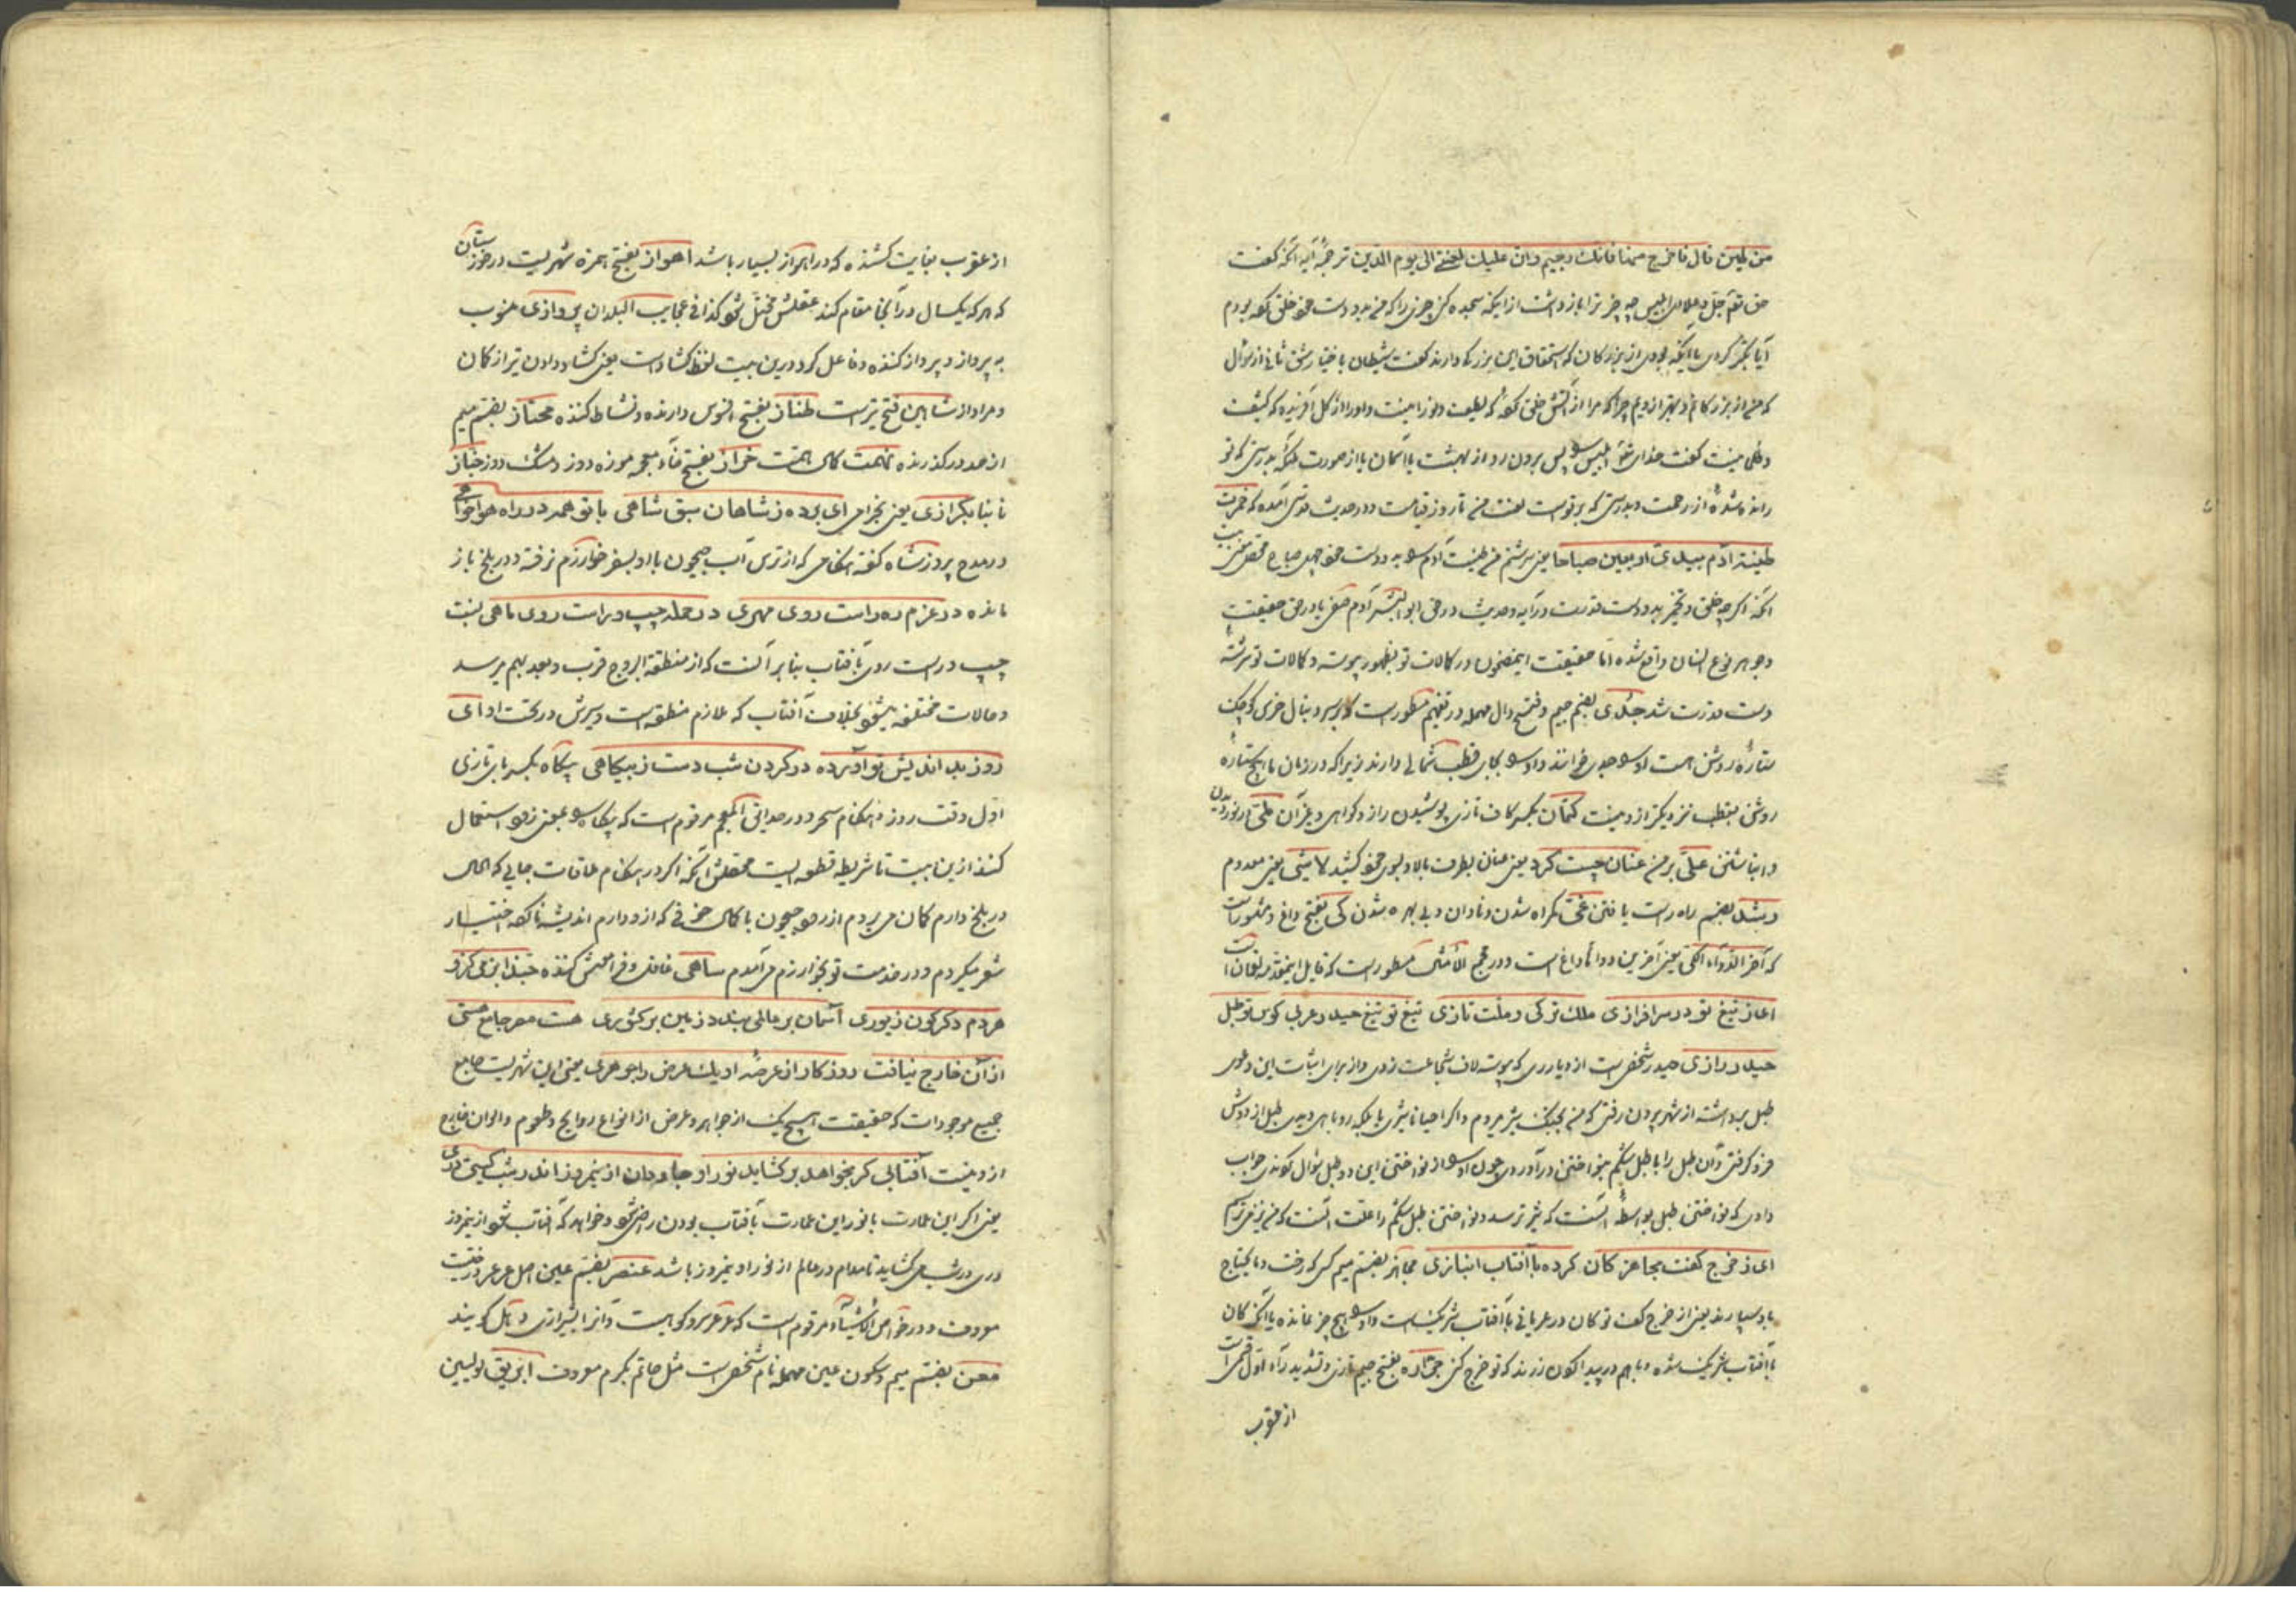 من طین قال فاخرج منها فانك رجیم وان علیك لعنتی الی یوم الدین ترجمهٔ آیه آنکه گفت
حق جل وعلا ای ابلیس چه چیز ترا بازداشت از اینکه سجده کنی چیزی را که من بدو دست خود خلق بودم
آیا تکبر کردی یا آنکه بودی از بزرگان که استحقاق این بزرگ دارند گفت شیطان باختیار شق ثانی از سوال
که من از بزرگانم و بهتر از ویم چرا که مرا از آتش خلق که لطیف ونورانیست واورا از گل آفریده که کثیف
وظلمانیست گفت خدای ابلیس پس برون رو از بهشت یا آسمان یا از صورت ملکی بدرستی که تو
رانده شدهٔ از رحمت وبدرستی که بر تو است لعنت من تا روز قیامت ودر حدیث قدسی آمده که خمرت
طینة آدم بیدی اربعین صباحا یعنی سرشتم من طینت آدم به دو دست خود چهل صباح
آنکه اگر چه خلق وتخمیر بدو دست قدرت در آیه وحدیث در حق ابو البشر آدم صفی یا در حق حقیقت
وجوهر نوع انسان واقع شده اما حقیقت این مضمون در کمالات تو بظهور پیوسته وکمالات تو سرشتهٔ
دست قدرت شد جدی بضم جیم وفتح دال مهمله در تفهیم مسطور است که بر سر دنبال خرس کوچک
ستارهٔ روشن است او جدی خوانند واو بجای قطب شمالی دارند زیرا که در زمان ما هیچ ستارهٔ
روشن بقطب نزدیکتر از و نیست کتمان بکسر کاف تازی پوشیدن راز وگواهی وغیر آن طی در نوردیدن
وانباشتن علی بر من عنان چپست کرد یعنی عنان بطرف بالا وبسوی خود کشید لاشی یعنی معدوم
رشد بضم راه راست یافتن غی گمراه شدن ونادان وبی بهره شدن کی بفتح داغ و مشهور است
که آخر الدواء الکی یعنی آخرین دواها داغ است ودر مجمع الامثال مسطور است که قایل این لقمان است
ای از تیغ تو در سرافرازی ملك ترکی وملت تازی تیغ تو تیغ حیدر وعربی کوس تو طبل
حیدر رازی حیدر شخصی است از دیار ری که پیوسته لاف شجاعت زدی واز برای اثبات این دعوی
طبل برداشته از شهر برون رفتی که من بجنگ شیر میروم واگر احیانا شیری یا بلکه روباهی دیدی طبل از دوش
فرو گرفتی وآن طبل را با طبل شکم بنواختن در آوردی چون او از نواختن این دو طبل سوال کردندی جواب
دادی که نواختن طبل بواسطهٔ آنست که شیر ترسد ونواختن طبل شکم را علت آنست که من نیز می ترسم
ای ز خرج کفت مجاهز کان کرده با آفتاب انبازی مجاهز بضم میم کسی که رخت وما یحتاج
باو سپارند یعنی از خرج کف تو کان در عریانی با آفتاب شریکست واو هیچ چیز نمانده یا آنکه کان
با آفتاب شریک شده وباهم در پیدا کردن زرند که تو خرج کنی جراره بفتح جیم تازی وتشدید راء اول قسمی است
از عقرب
از عقرب بغایت کشنده که در اهواز بسیار باشد اهواز بفتح همزه شهریست در خوزستان
که هر که یکسال در آنجا مقام کند عقلش مختل شود کذا فی عجایب البلدان پروازی منسوب
به پرواز وپرواز کننده وفاعل کرد درین بیت لفظ گشاد است یعنی گشاد دادن تیر از کمان
ومراد از شاهین فتح تیر است طناز بفتح افسوس دارنده ونشاط کننده مجتاز بضم میم
از حد در گذرنده نهمت کمال همت خراز بفتح خاء معجمه موزه دوز ومشک دوز خباز
نانبا بگرازی یعنی بخرامی ای برده ز شاهان سبق شاهی با تو همه در راه هواخواهی
در مدح پیروز شاه گفته هنگامی که از ترس آب جیحون با او بسفر خوارزم نرفته ودر بلخ باز
مانده در عزم ره راست روی مهری در حمله چپ وراست روی ماهی نسبت
چپ وراست روی بآفتاب بنا بر آنست که از منطقة البروج قرب وبعد بهم میرسد
وحالات مختلفه میشود بخلاف آفتاب که ملازم منطقه است وسیرش در تحت او ای
روز بد اندیش تو آورده در گردن شب دست ز بیگاهی پگاه بکسر بای تازی
اول وقت روز وهنگام سحر ودر حدایق المعجم مرقوم است که پگاه بمعنی زود استعمال
کنند ازین بیت تا شریطه قطعه ایست محصلش آنکه اگر در هنگام ملاقات جایی که الحال
در بلخ دارم گمان می بردم از رود جیحون با کمال خوفی که ازو دارم اندیشه ناکرده اختیار
سفر میکردم ودر خدمت تو بخوارزم می آمدم ساهی غافل وفراموش کننده حبذا بزمی کزو
هر دم دگرگون زیوری آسمان بر عالمی بندد زمین بر کشوری هست مصر جامع هستی
از آن خارج نیافت روزگار از عرصهٔ او یك عرض را جوهری یعنی این شهریست جامع
جمیع موجودات که حقیقت هیچ یک از جواهر وعرض از انواع روایح وطعوم والوان خارج
ازو نیست آفتابی گر بخواهد برگشاید نور او جاودان از نیمروز اندر شب گیتی دری
یعنی اگر این عمارت یا نور این عمارت بآفتاب بودن راضی شود وخواهد که آفتاب شود از نیمروز
دری در شب می گشاید تا مدام در عالم از نور او نیمروز باشد عنصر بضم عین اصل عرعر درختیست
معروف ودر خواص الاشیاء مرقوم است که عرعر سرو کوهیست وآنرا بشیرازی وهل گویند
معن بفتح میم وسکون عین مهمله نام شخصی است مثل حاتم بکرم معروف ابریق لولیین